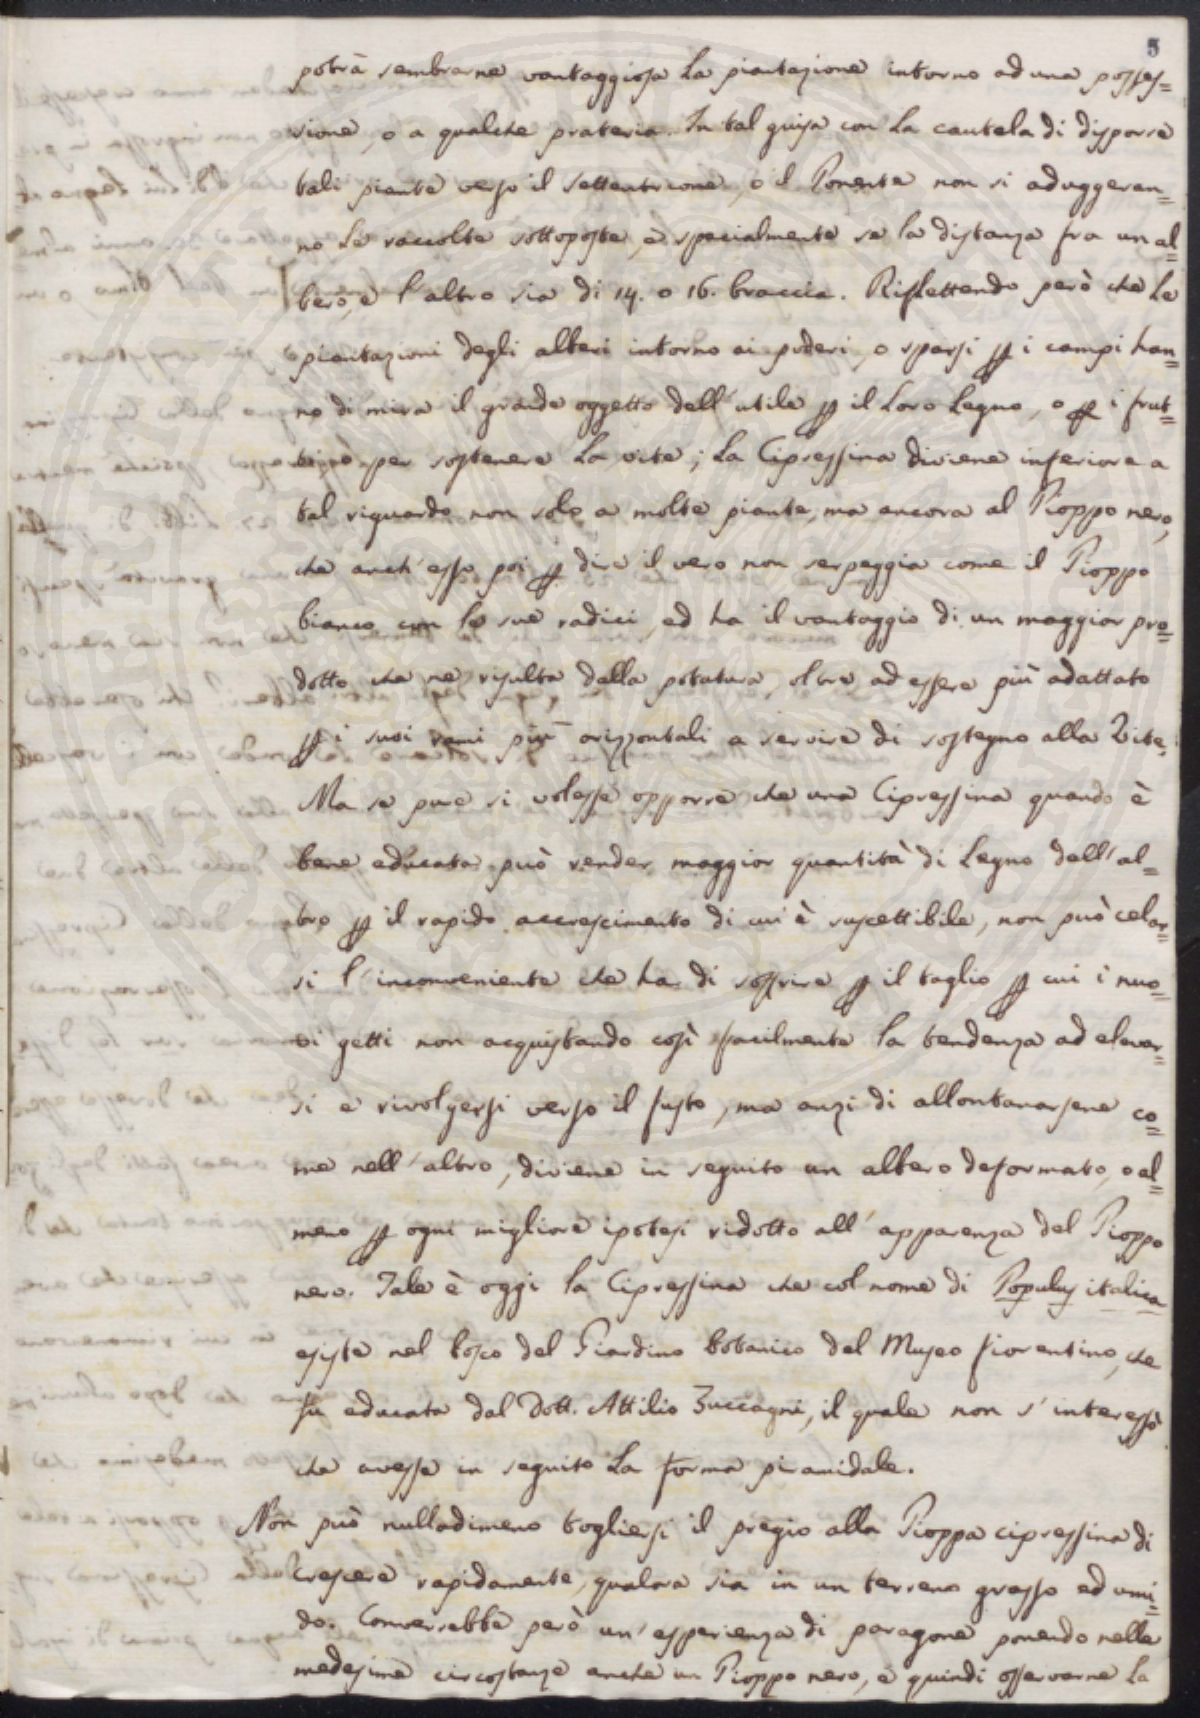 5
potrà sembrarne vantaggiosa la piantazione intorno ad una posses=
sione, o a qualche prateria. In tal guisa con la cautela di disporre
tali piante verso il settentrione, o il Ponente non si aduggeran=
no le raccolte sottoposte, e specialmente se la distanza fra un al=
bero, e l'altro sia di 14. o 16. braccia. Riflettendo però che le
piantazioni degli alberi intorno ai poderi, o sparsi p i campi han=
no di mira il grande oggetto dell'utile p il loro legno, o p i frut=
ti, o per sostenere la vite; la Cipressina diviene inferiore a
tal riguardo non solo a molte piante, ma ancora al Pioppo nero,
che anch'esso poi p dire il vero non serpeggia come il Pioppo
bianco con le sue radici, ed ha il vantaggio di un maggior pro=
dotto che ne risulta dalla potatura, oltre ad essere più adattato
p i suoi rami più orizzontali a servire di sostegno alla Vite.
Ma se pure si volesse opporre che una Cipressina quando è
bene educata può render maggior quantità di legno dell'al=
tro p il rapido accrescimento di cui è suscettibile, non può celar=
si l'inconveniente che ha di soffrire p il taglio p cui i nuo=
vi getti non acquistando così facilmente la tendenza ad elevar=
si e rivolgersi verso il fusto, ma anzi di allontanarsene co=
me nell'altro, diviene in seguito un albero deformato, o al=
meno p ogni migliore ipotesi ridotto all'apparenza del Pioppo
nero. Tale è oggi la Cipressina che col nome di Populus italica
esiste nel bosco del Giardino botanico del Museo fiorentino, che
fu educata dal Dott. Attilio Zuccagni, il quale non s'interessò
che avesse in seguito la forma piramidale.
Non può nulladimeno togliersi il pregio alla Pioppa cipressina di
crescere rapidamente, qualora sia in un terreno grasso ed umi=
do. Converrebbe però un'esperienza di paragone ponendo nelle
medesime circostanze anche un Pioppo nero, e quindi osservarne la